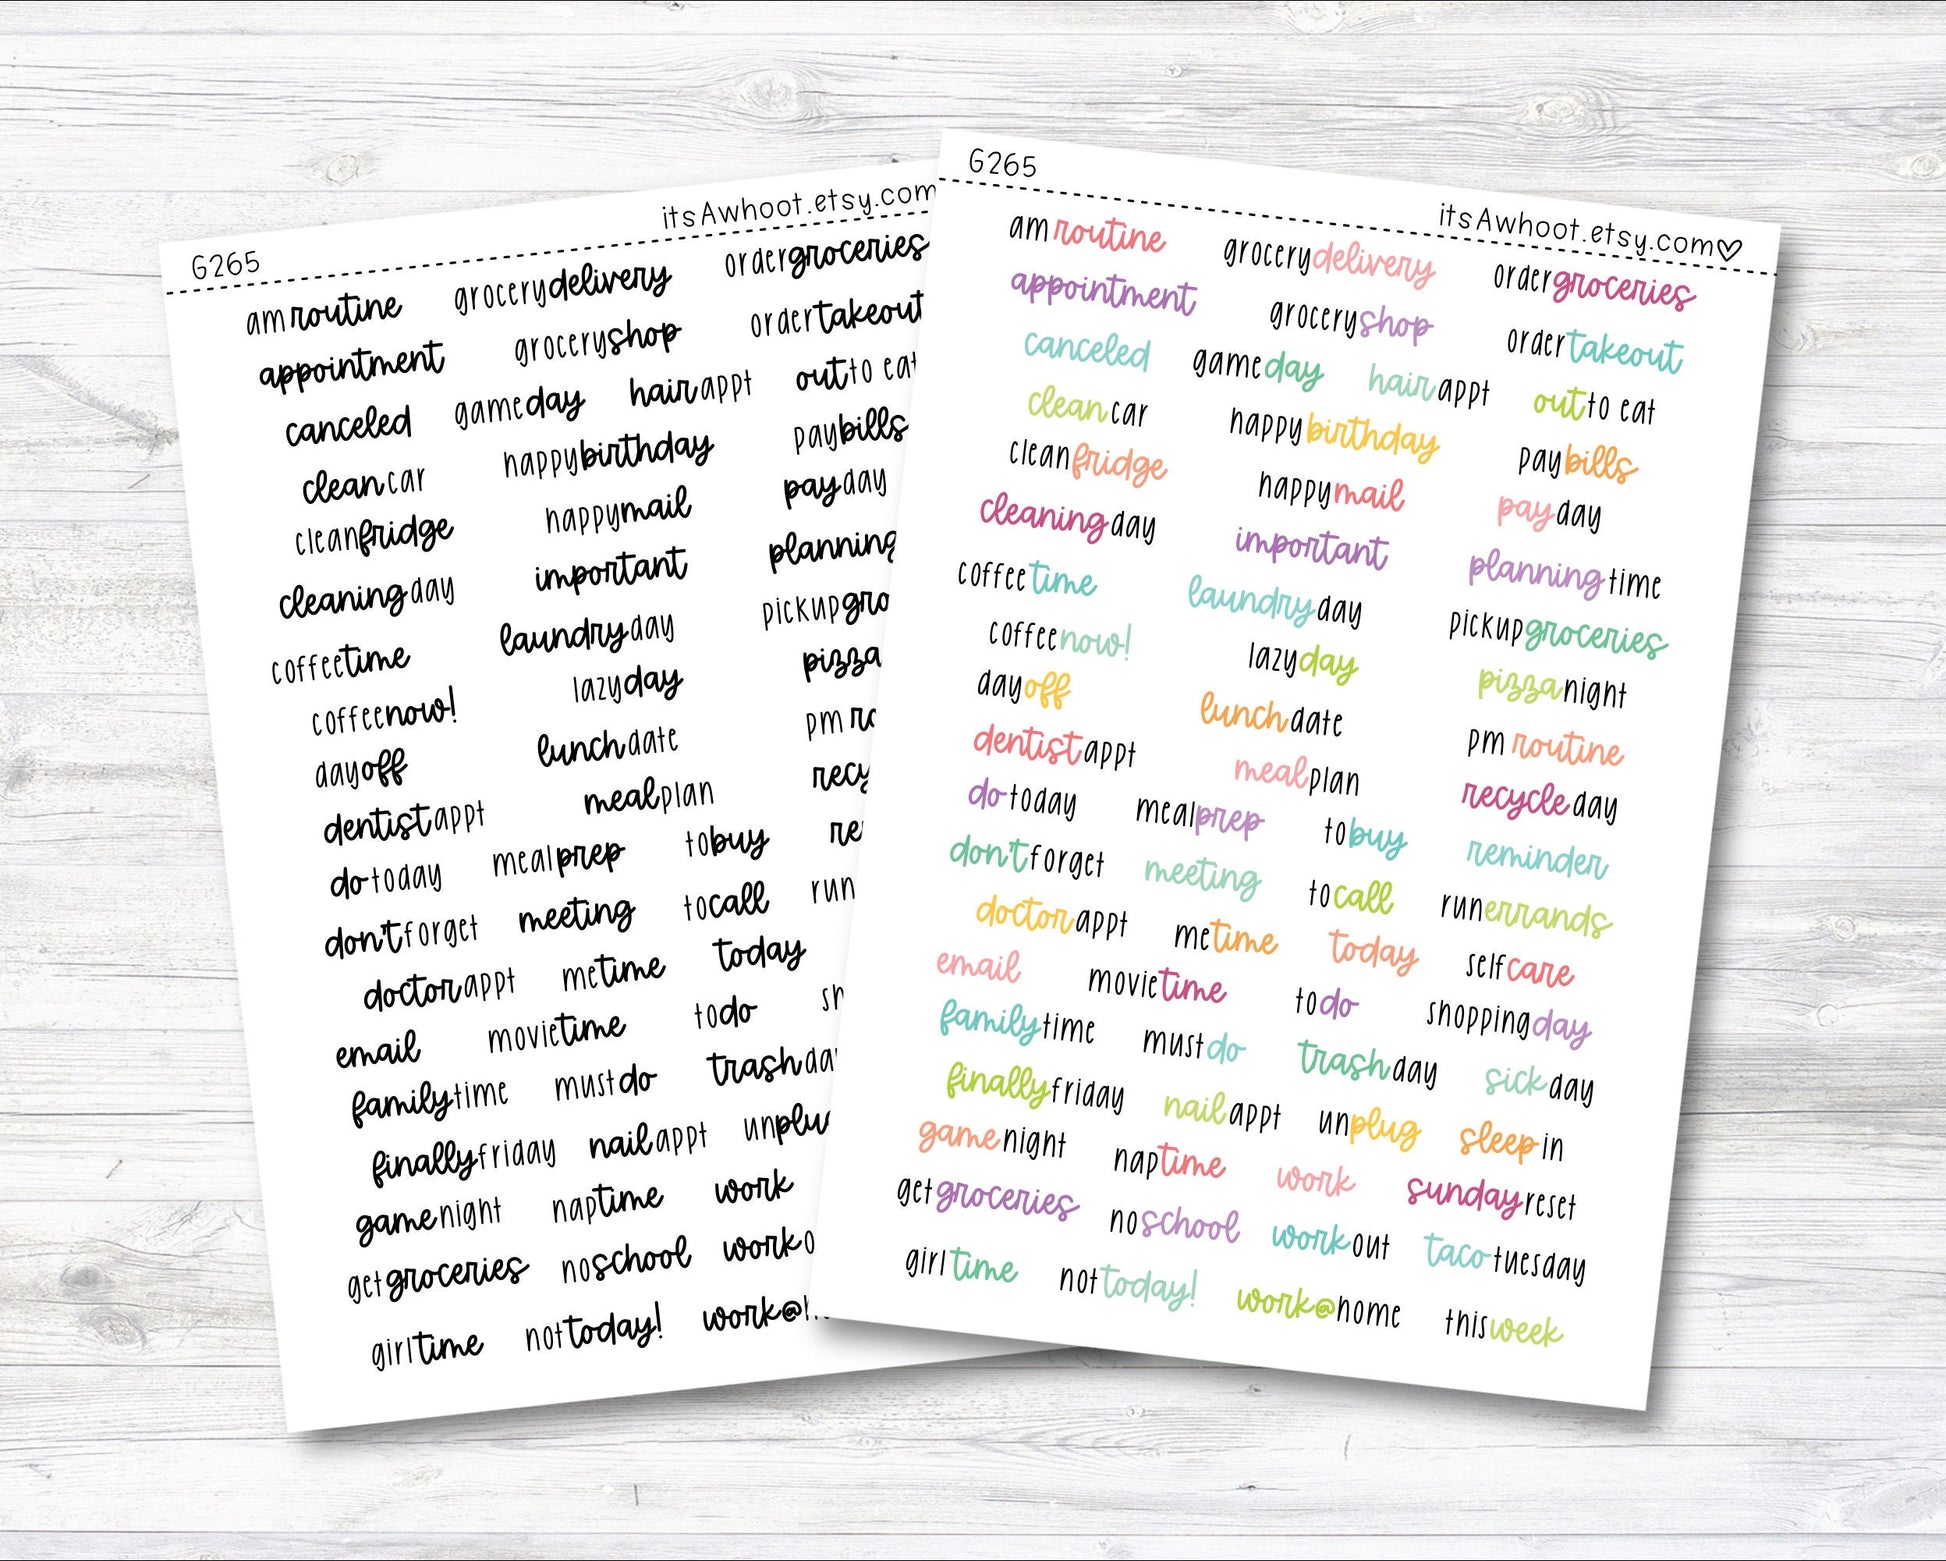 G265
itsAwhoot.etsy.com
am routine grocery delivery order groceries
appointment grocery shop order takeout
canceled game day hair appt out to eat
clean car happy birthday pay bills
clean fridge happy mail pay day
cleaning day important planning
coffee time laundry day pickup
coffee now! lazy day pizza
day off lunch date pm
dentist appt meal plan
do today meal prep to buy
don't forget meeting to call run
doctor appt me time today
email movie time to do
family time must do trash day
finally friday nail appt
game night nap time work
get groceries no school work
girl time not today! work@
G265
itsAwhoot.etsy.com♡
am routine grocery delivery order groceries
appointment grocery shop order takeout
canceled game day hair appt out to eat
clean car happy birthday pay bills
clean fridge happy mail pay day
cleaning day important planning time
coffee time laundry day pickup groceries
coffee now! lazy day pizza night
day off lunch date pm routine
dentist appt meal plan recycle day
do today meal prep to buy reminder
don't forget meeting to call run errands
doctor appt me time today self care
email movie time to do shopping day
family time must do trash day sick day
finally friday nail appt unplug sleep in
game night nap time work sunday reset
get groceries no school work out taco tuesday
girl time not today! work@home this week